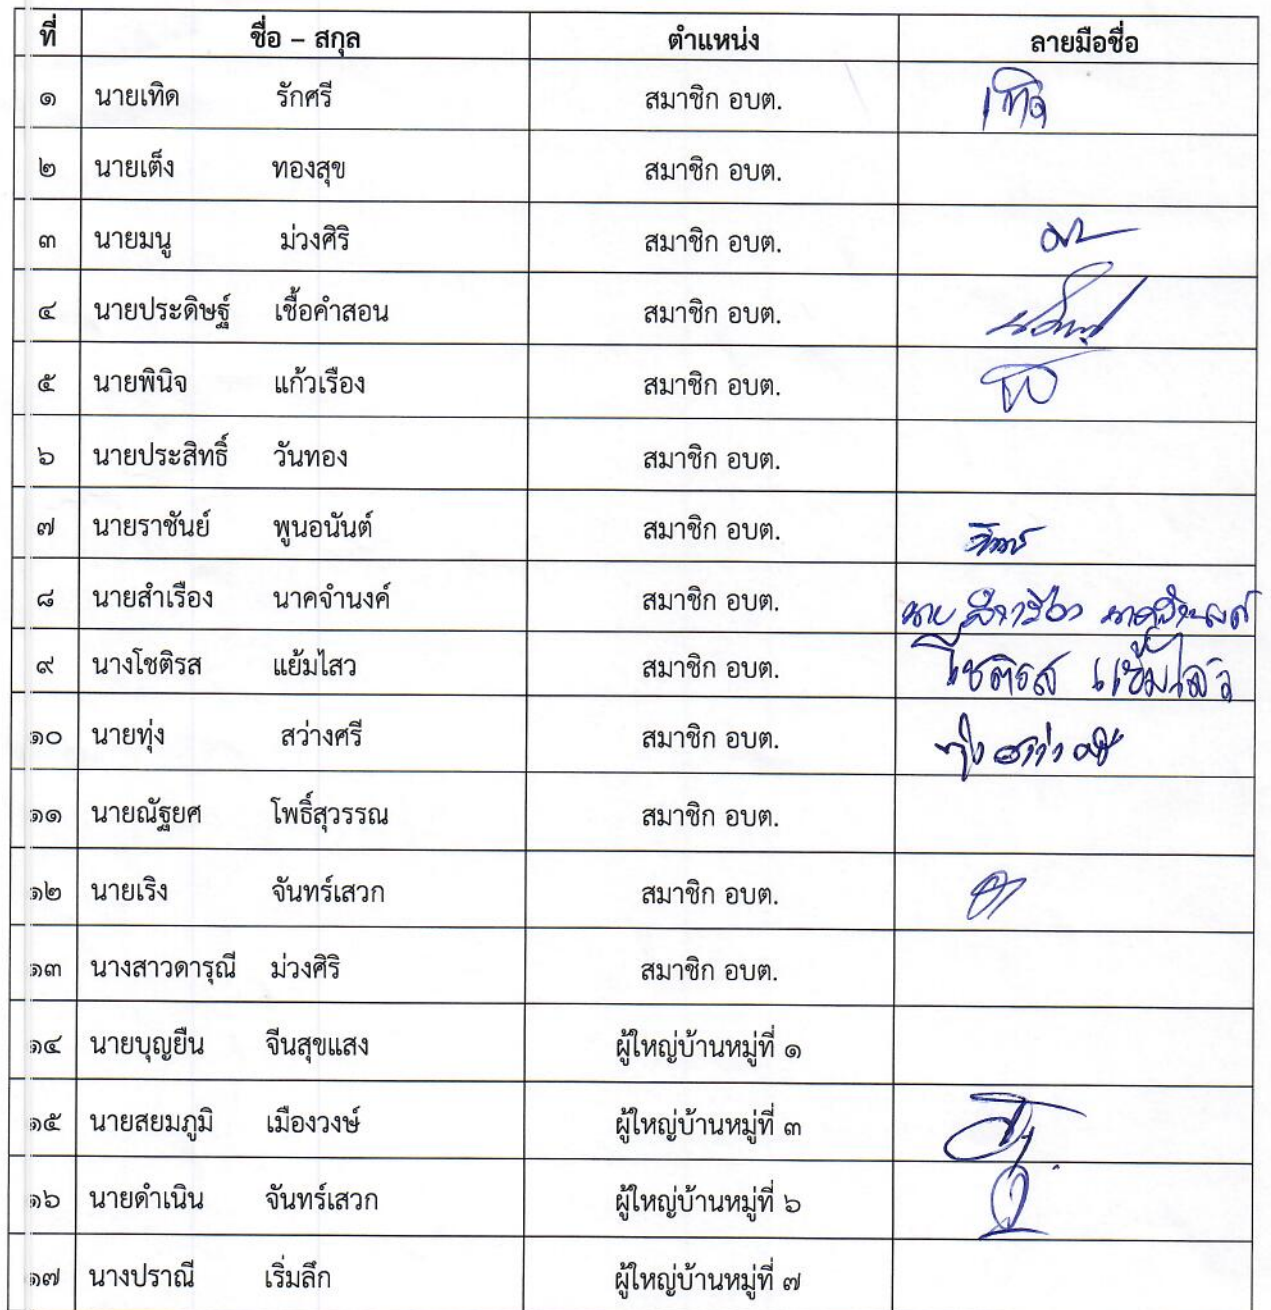 ที่ ชื่อ – สกุล ตำแหน่ง ลายมือชื่อ
๑ นายเทิด รักศรี สมาชิก อบต. เทิด
๒ นายเต็ง ทองสุข สมาชิก อบต.
๓ นายมนู ม่วงศิริ สมาชิก อบต.
๔ นายประดิษฐ์ เชื้อคำสอน สมาชิก อบต.
๕ นายพินิจ แก้วเรือง สมาชิก อบต.
๖ นายประสิทธิ์ วันทอง สมาชิก อบต.
๗ นายราชันย์ พูนอนันต์ สมาชิก อบต.
๘ นายสำเรือง นาคจำนงค์ สมาชิก อบต. นาย สำเรือง นาคจำนงค์
๙ นางโชติรส แย้มไสว สมาชิก อบต. โชติรส แย้มไสว
๑๐ นายทุ่ง สว่างศรี สมาชิก อบต. ทุ่ง สว่างศรี
๑๑ นายณัฐยศ โพธิ์สุวรรณ สมาชิก อบต.
๑๒ นายเริง จันทร์เสวก สมาชิก อบต.
๑๓ นางสาวดารุณี ม่วงศิริ สมาชิก อบต.
๑๔ นายบุญยืน จีนสุขแสง ผู้ใหญ่บ้านหมู่ที่ ๑
๑๕ นายสยมภูมิ เมืองวงษ์ ผู้ใหญ่บ้านหมู่ที่ ๓
๑๖ นายดำเนิน จันทร์เสวก ผู้ใหญ่บ้านหมู่ที่ ๖
๑๗ นางปราณี เริ่มลึก ผู้ใหญ่บ้านหมู่ที่ ๗